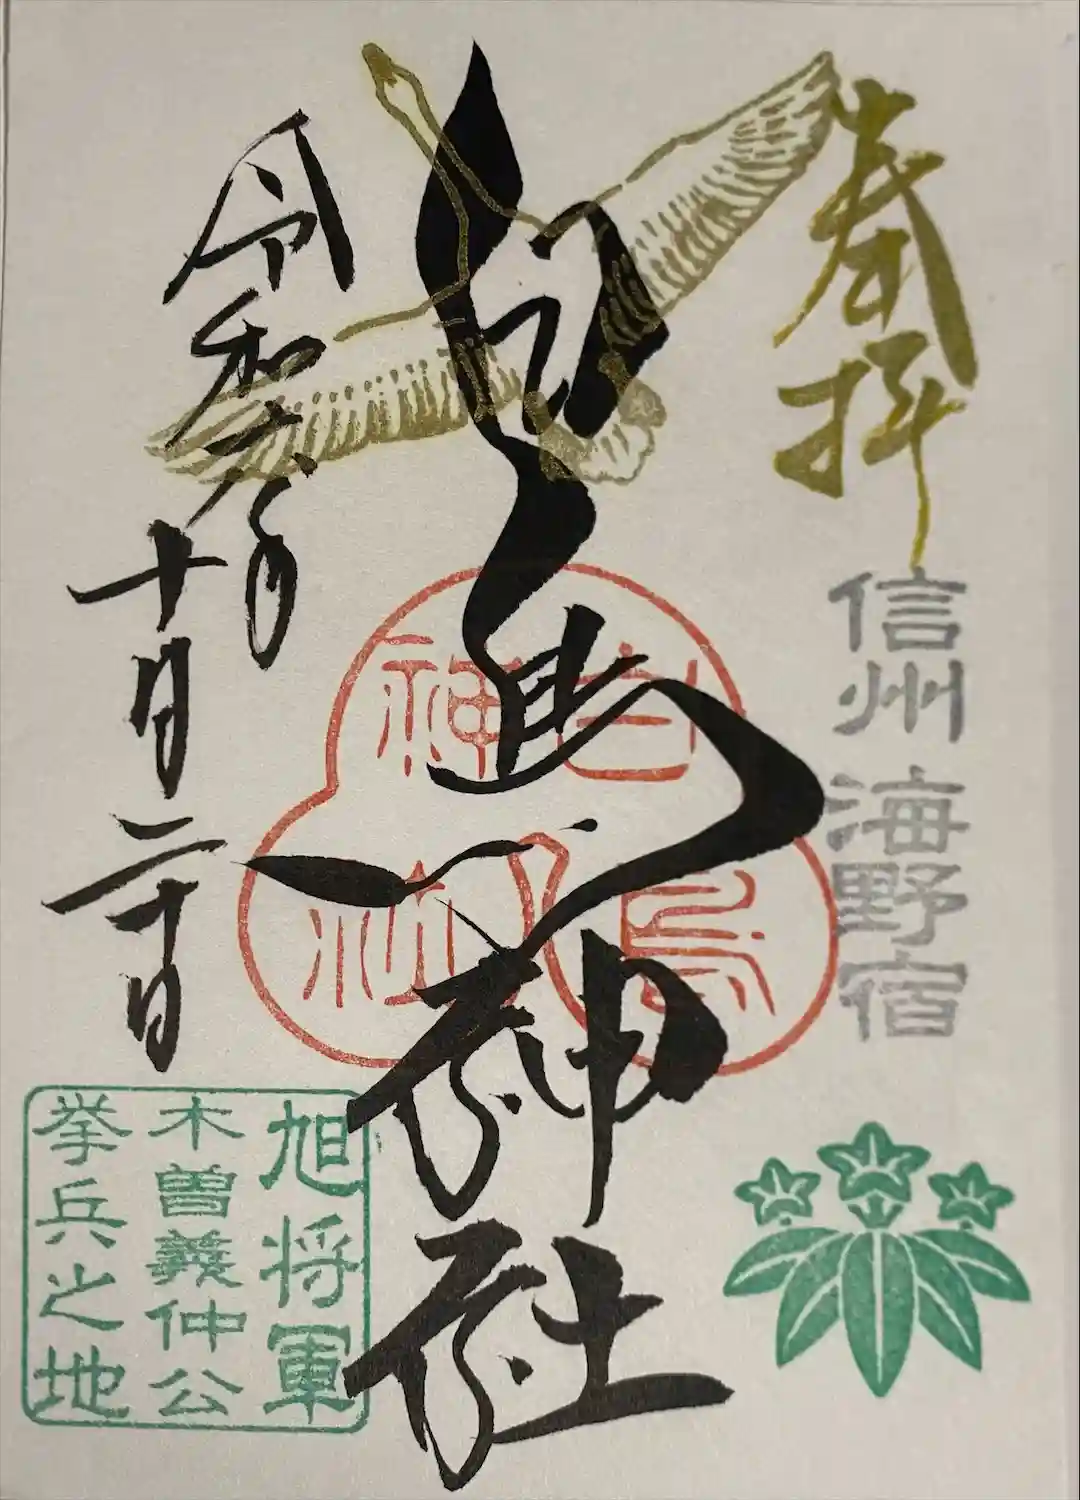 奉拝
信州 海野宿
白鳥神社
白鳥
神社
令和六年
十月二十日
旭将軍
木曽義仲公
挙兵之地